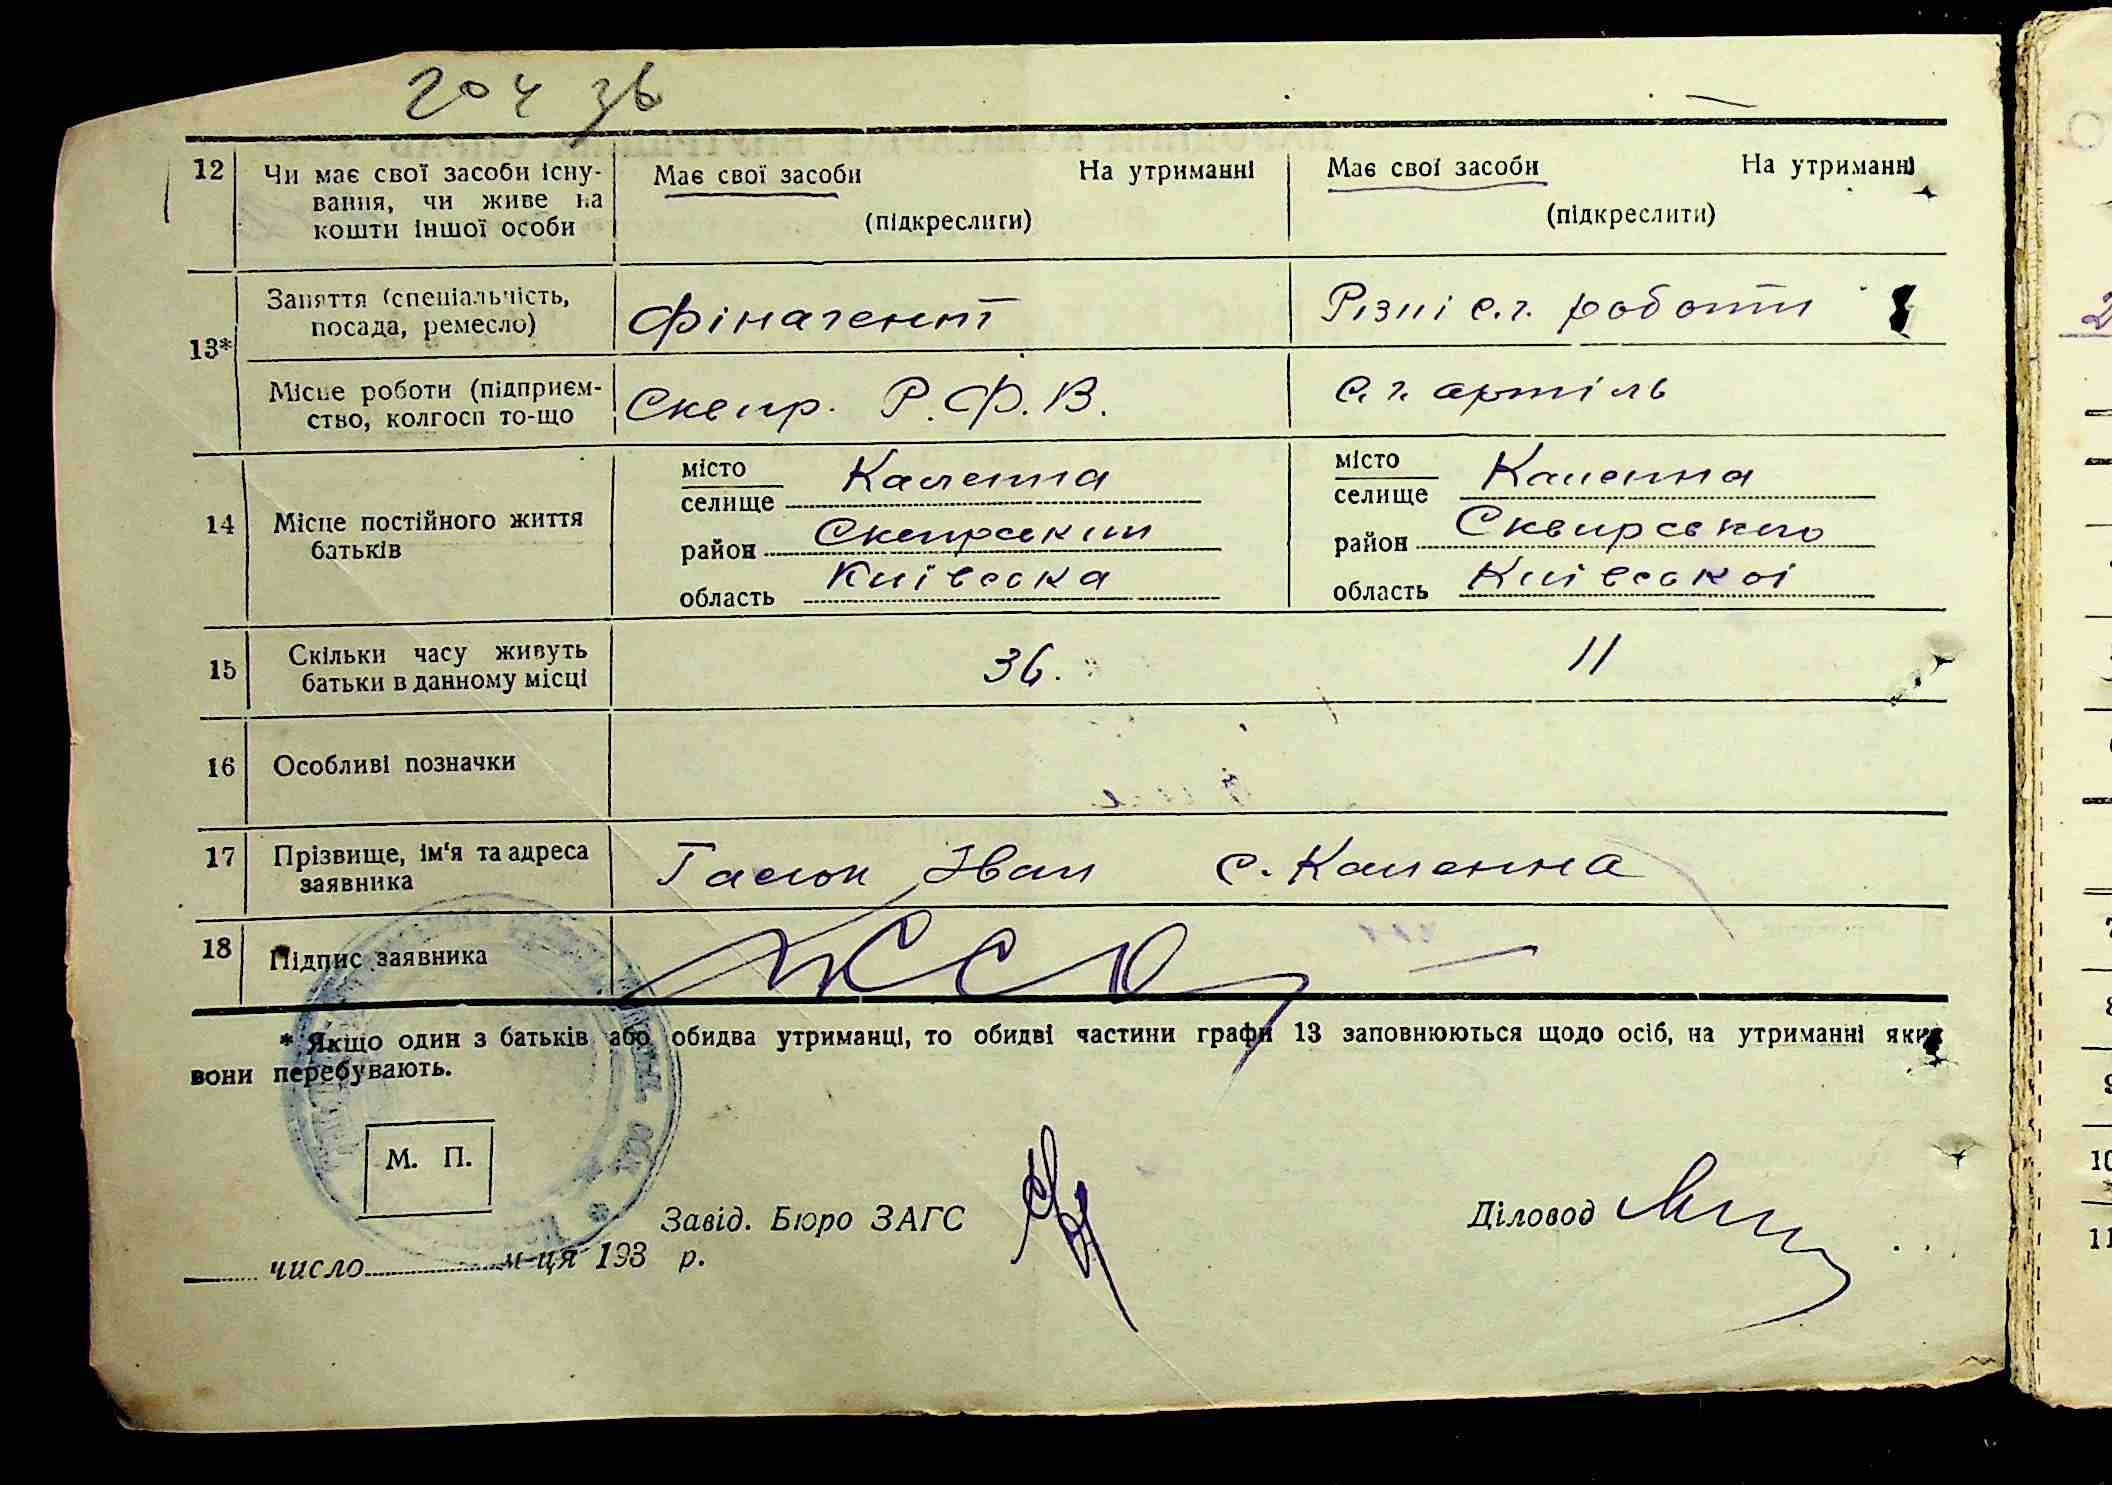 204 зв
12 Чи має свої засоби існу- Має свої засоби На утриманні Має свої засоби На утриманні
вання, чи живе на
кошти іншої особи (підкреслити) (підкреслити)
13* Заняття (спеціальність, Фінагент Різні с.г. роботи
посада, ремесло)
Місце роботи (підприєм- Сквир. Р.Ф.В. с.г. артіль
ство, колгосп то-що
14 Місце постійного життя батьків
місто Каленна місто Каленна
селище селище
район Сквирський район Сквирського
область Київська область Київської
15 Скільки часу живуть 36. 11
батьки в данному місці
16 Особливі позначки
17 Прізвище, ім'я та адреса Іван с. Каленна
заявника
18 Підпис заявника
* Якщо один з батьків або обидва утриманці, то обидві частини графи 13 заповнюються щодо осіб, на утриманні яких
вони перебувають.
М. П.
Завід. Бюро ЗАГС Діловод
число м-ця 193 р.
2
7
8
9
10
11